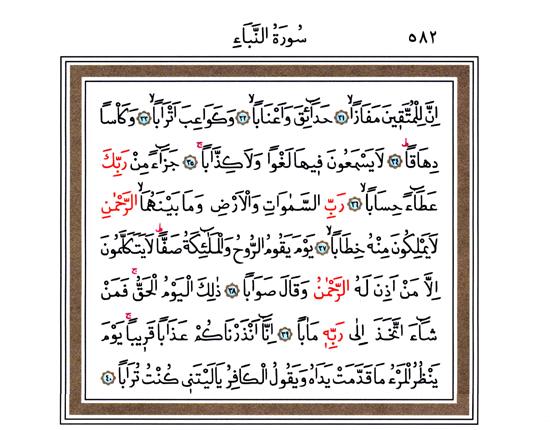 سُورَةُ النَّبَاءِ ٥٨٢
اِنَّ لِلْمُتَّقٖينَ مَفَازًاۙ ﴿٣١﴾ حَدَٓائِقَ وَاَعْنَابًاۙ ﴿٣٢﴾ وَكَوَاعِبَ اَتْرَابًاۙ ﴿٣٣﴾ وَكَأْسًا
دِهَاقًاۜ ﴿٣٤﴾ لَا يَسْمَعُونَ فٖيهَا لَغْوًا وَلَا كِذَّابًاۚ ﴿٣٥﴾ جَزَٓاءً مِنْ رَبِّكَ
عَطَٓاءً حِسَابًاۙ ﴿٣٦﴾ رَبِّ السَّمٰوَاتِ وَالْاَرْضِ وَمَا بَيْنَهُمَا الرَّحْمٰنِ
لَا يَمْلِكُونَ مِنْهُ خِطَابًاۚ ﴿٣٧﴾ يَوْمَ يَقُومُ الرُّوحُ وَالْمَلٰٓئِكَةُ صَفًّاۜ لَا يَتَكَلَّمُونَ
اِلَّا مَنْ اَذِنَ لَهُ الرَّحْمٰنُ وَقَالَ صَوَابًا ﴿٣٨﴾ ذٰلِكَ الْيَوْمُ الْحَقُّۚ فَمَنْ
شَٓاءَ اتَّخَذَ اِلٰى رَبِّهٖ مَاٰبًا ﴿٣٩﴾ اِنَّٓا اَنْذَرْنَاكُمْ عَذَابًا قَرٖيبًاۚ يَوْمَ
يَنْظُرُ الْمَرْءُ مَا قَدَّمَتْ يَدَاهُ وَيَقُولُ الْكَافِرُ يَا لَيْتَنٖي كُنْتُ تُرَابًا ﴿٤٠﴾